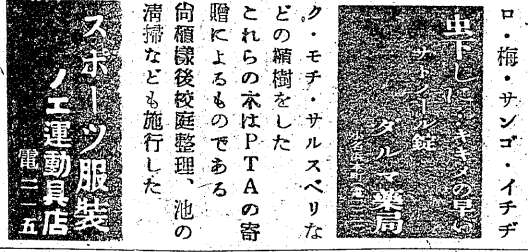 ロ・梅・サンゴ・イチヂ
虫下しに‥キキメの早い
サトノール錠
ダルマ薬局
ク・モチ・サルスベリな
どの植樹をした
これらの木はPTAの寄
贈によるものである
尚植樹後校庭整理、池の
清掃なども施行した
スポーツ服装
ノエ運動具店
電二一五